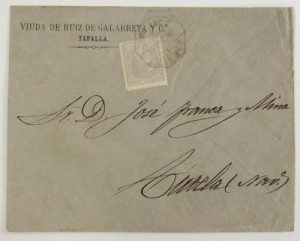 VIUDA DE RUIZ DE GALARRETA Y Cª
TAFALLA.
Sr. D. José Franca y Mina
Tudela (Nava)